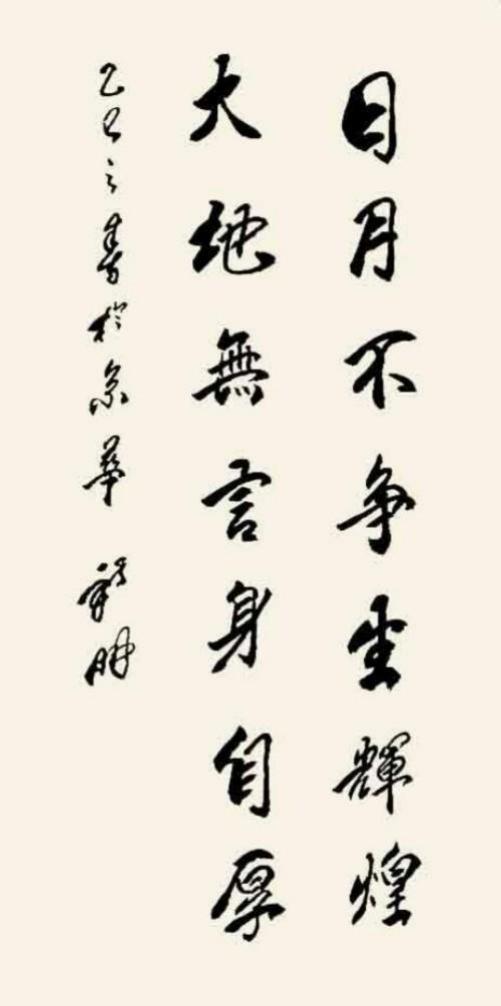 日月不争坐輝煌
大地無言身自厚
乙巳之春書於京華